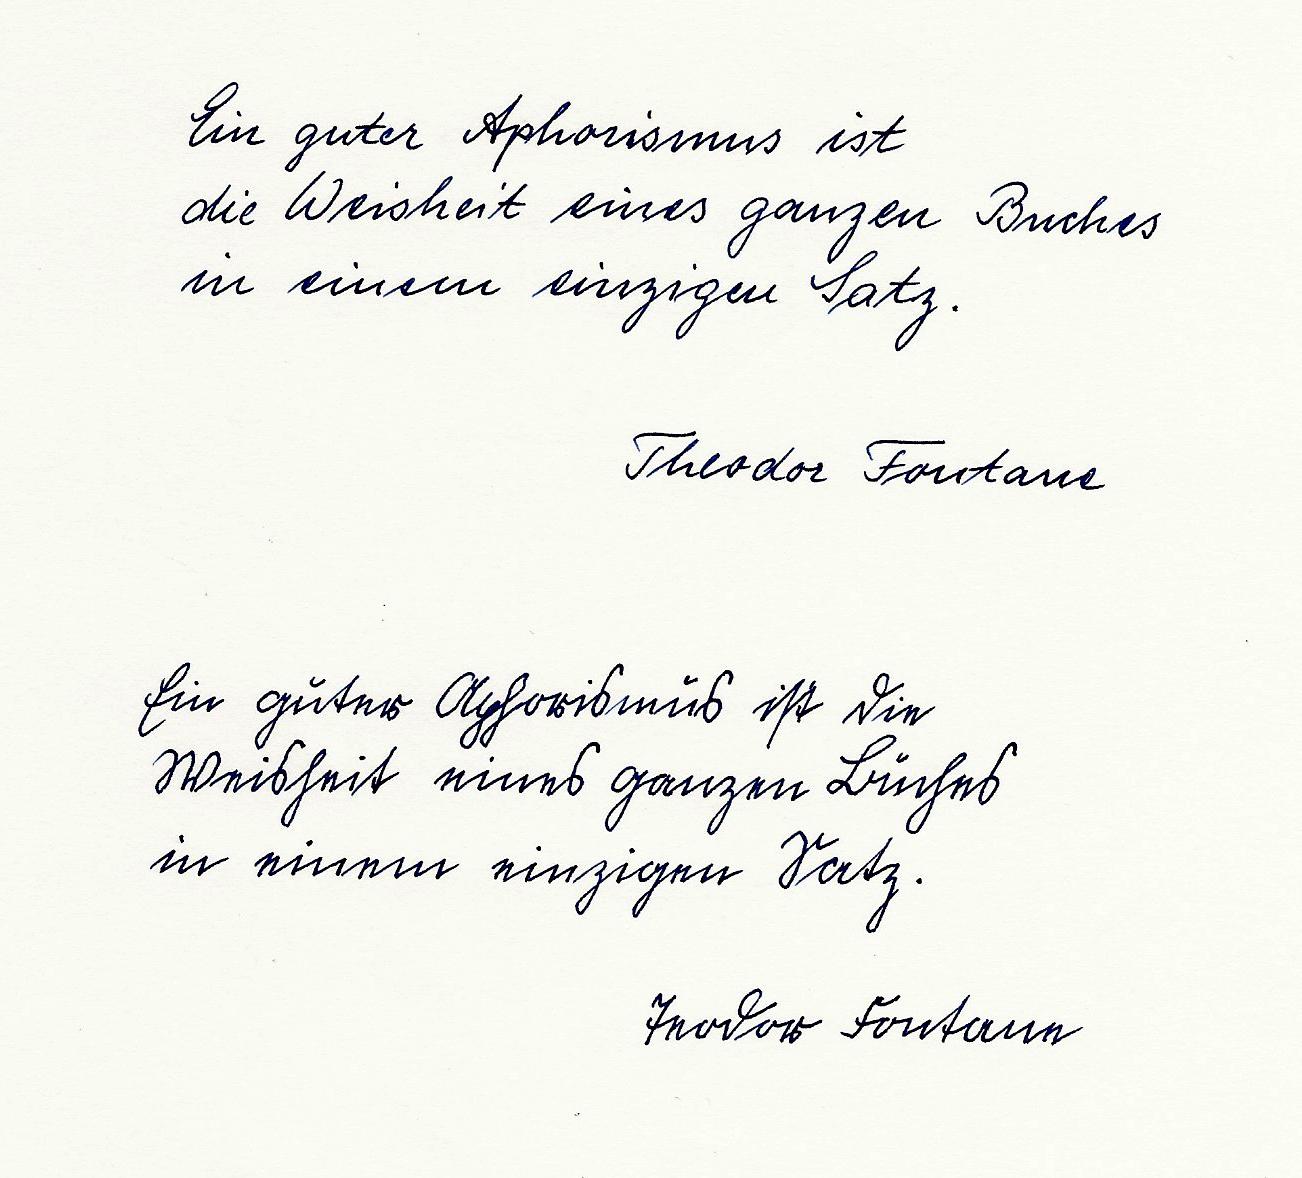 Ein guter Aphorismus ist
die Weisheit eines ganzen Buches
in einem einzigen Satz.
Theodor Fontane
Ein guter Aphorismus ist die
Weisheit eines ganzen Buches
in einem einzigen Satz.
Teodor Fontane